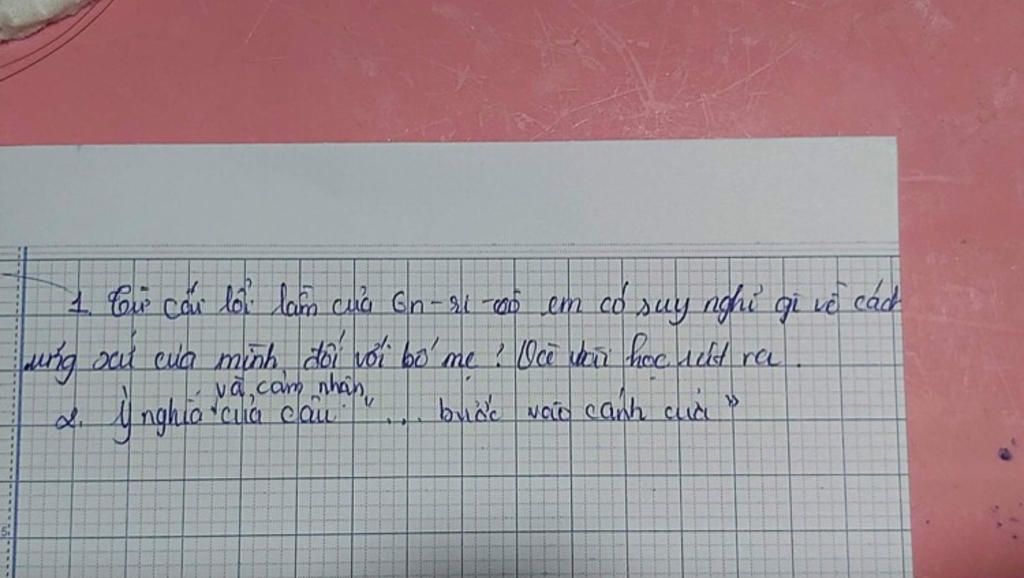 1. Từ cái lỗi lầm của En-ri-cô em có suy nghĩ gì về cách
ứng xử của mình đối với bố mẹ? Và bài học rút ra.
và cảm nhận
2. Ý nghĩa của câu "... bước vào cánh cửa"